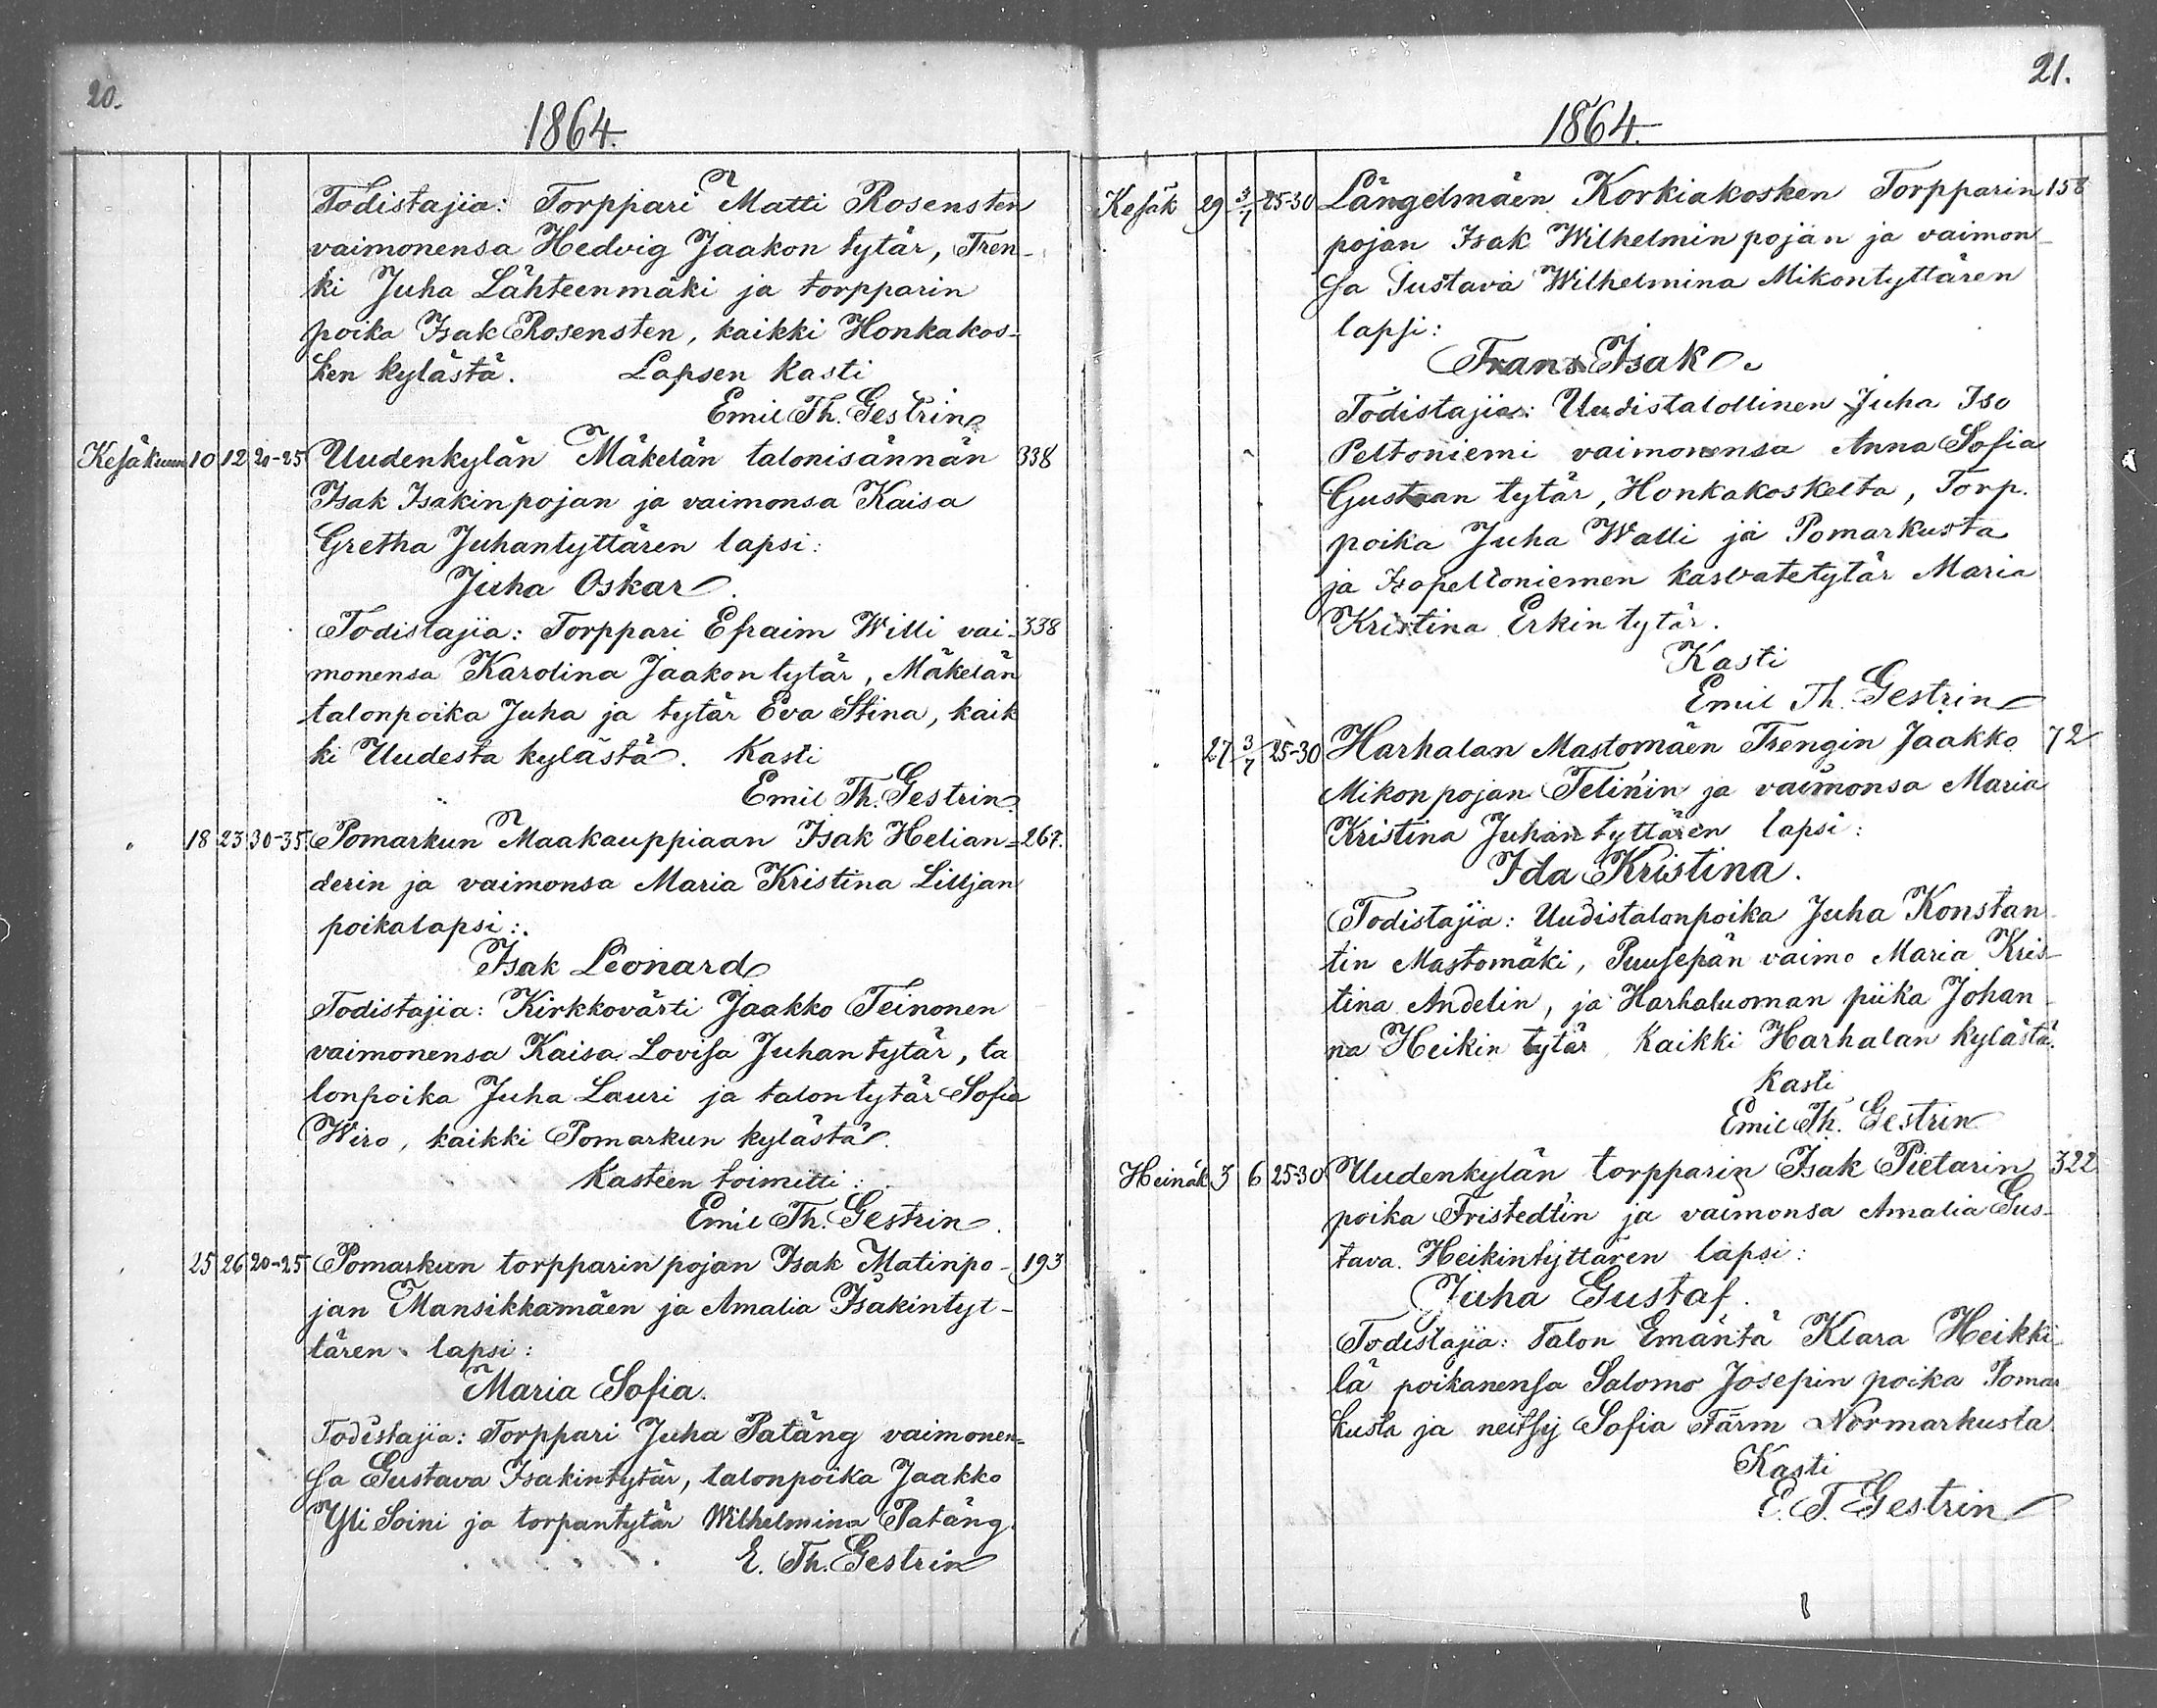 20.
1864.
Todistajia: Torppari Matti Rosensten
vaimonensa Hedvig Jaakon tytär, Tren-
ki Juha Lähteenmäki ja torpparin
poika Isak Rosensten, kaikki Honkakos-
ken kylästä. Lapsen kasti
Emil Th. Gestrin
Kesäkuun 10 12 20-25 Uudenkylän Mäkelän talonisännän 338
Isak Isakinpojan ja vaimonsa Kaisa
Gretha Juhantyttären lapsi:
Juha Oskar.
Todistajia: Torppari Efraim Willi vai- 338
monensa Karolina Jaakon tytär, Mäkelän
talonpoika Juha ja tytär Eva Stina, kaik
ki Uudesta kylästä. Kasti
Emil Th. Gestrin
" 18 23 30-35 Pomarkun Maakauppiaan Isak Helian- 267.
derin ja vaimonsa Maria Kristina Lilljan
poikalapsi:
Isak Leonard
Todistajia: Kirkkovärti Jaakko Teinonen
vaimonensa Kaisa Lovisa Juhan tytär, ta
lonpoika Juha Lauri ja talontytär Sofia
Wiro, kaikki Pomarkun kylästä.
Kasteen toimitti:
Emil Th. Gestrin.
" 25 26 20-25 Pomarkun torpparin pojan Isak Matinpo- 193
jan Mansikkamäen ja Amalia Isakintyt-
tären lapsi:
Maria Sofia.
Todistajia: Torppari Juha Patäng vaimonen-
sa Gustava Isakintytär, talonpoika Jaakko
Yli Soini ja torpantytär Wilhelmina Patäng.
E. Th. Gestrin
21.
1864.
Kesäk 29 3/7 25-30 Längelmäen Korkiakosken Torpparin 158
pojan Isak Wilhelmin pojan ja vaimon-
sa Gustava Wilhelmina Mikontyttären
lapsi:
Frans Isak.
Todistajia: Uudistalollinen Juha Iso
Peltoniemi vaimonensa Anna Sofia
Gustaan tytär, Honkakoskelta, Torp.
poika Juha Walli ja Pomarkusta
ja Isopeltoniemen kasvatetytär Maria
Kristina Erkin tytär.
Kasti
Emil Th. Gestrin
" 27 3/7 25-30 Harhalan Mastomäen Trengin Jaakko 72
Mikon pojan Felinin ja vaimonsa Maria
Kristina Juhan tyttären lapsi:
Ida Kristina.
Todistajia: Uudistalonpoika Juha Konstan
tin Mastomäki, Puusepän vaimo Maria Kris-
tina Andelin, ja Harhaluoman piika Johan-
na Heikin tytär kaikki Harhalan kylästä.
Kasti
Emil Th. Gestrin
Heinäk 3 6 25-30 Uudenkylän torpparin Isak Pietarin 322
poika Fristedtin ja vaimonsa Amalia Gus-
tava Heikintyttären lapsi:
Juha Gustaf.
Todistajia: Talon Emäntä Klara Heikki-
lä poikanensa Salomo Josepin poika Pomar
kusta ja neitsy Sofia Färm Normarkusta
Kasti
E. T. Gestrin